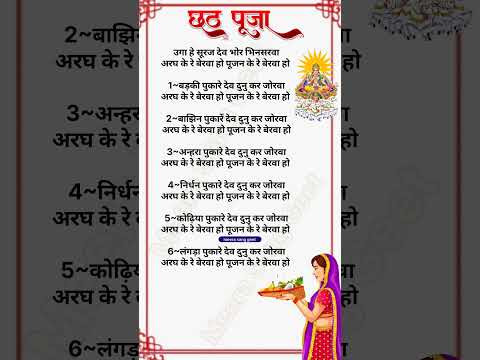 छठ पूजा
उगा हे सूरज देव भोर भिनसरवा
अरघ के रे बेरवा हो पूजन के रे बेरवा हो
1~बड़की पुकारे देव दुनु कर जोरवा
अरघ के रे बेरवा हो पूजन के रे बेरवा हो
2~बाझिन पुकारें देव दुनु कर जोरवा
अरघ के रे बेरवा हो पूजन के रे बेरवा हो
3~अन्हरा पुकारे देव दुनु कर जोरवा
अरघ के रे बेरवा हो पूजन के रे बेरवा हो
4~निर्धन पुकारे देव दुनु कर जोरवा
अरघ के रे बेरवा हो पूजन के रे बेरवा हो
5~कोढ़िया पुकारे देव दुनु कर जोरवा
अरघ के रे बेरवा हो पूजन के रे बेरवा हो
6~लंगड़ा पुकारे देव दुनु कर जोरवा
अरघ के रे बेरवा हो पूजन के रे बेरवा हो
2~बाझिन
अरघ के रे
3~अन्हरा
अरघ के रे
4~निर्धन
अरघ के रे
5~कोढ़ि
अरघ के रे
6~लंगड़
र जोरवा
बेरवा हो
र जोरवा
बेरवा हो
र जोरवा
बेरवा हो
कर जोरवा
बेरवा हो